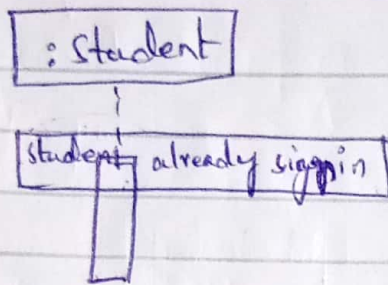 : Student
student already signin